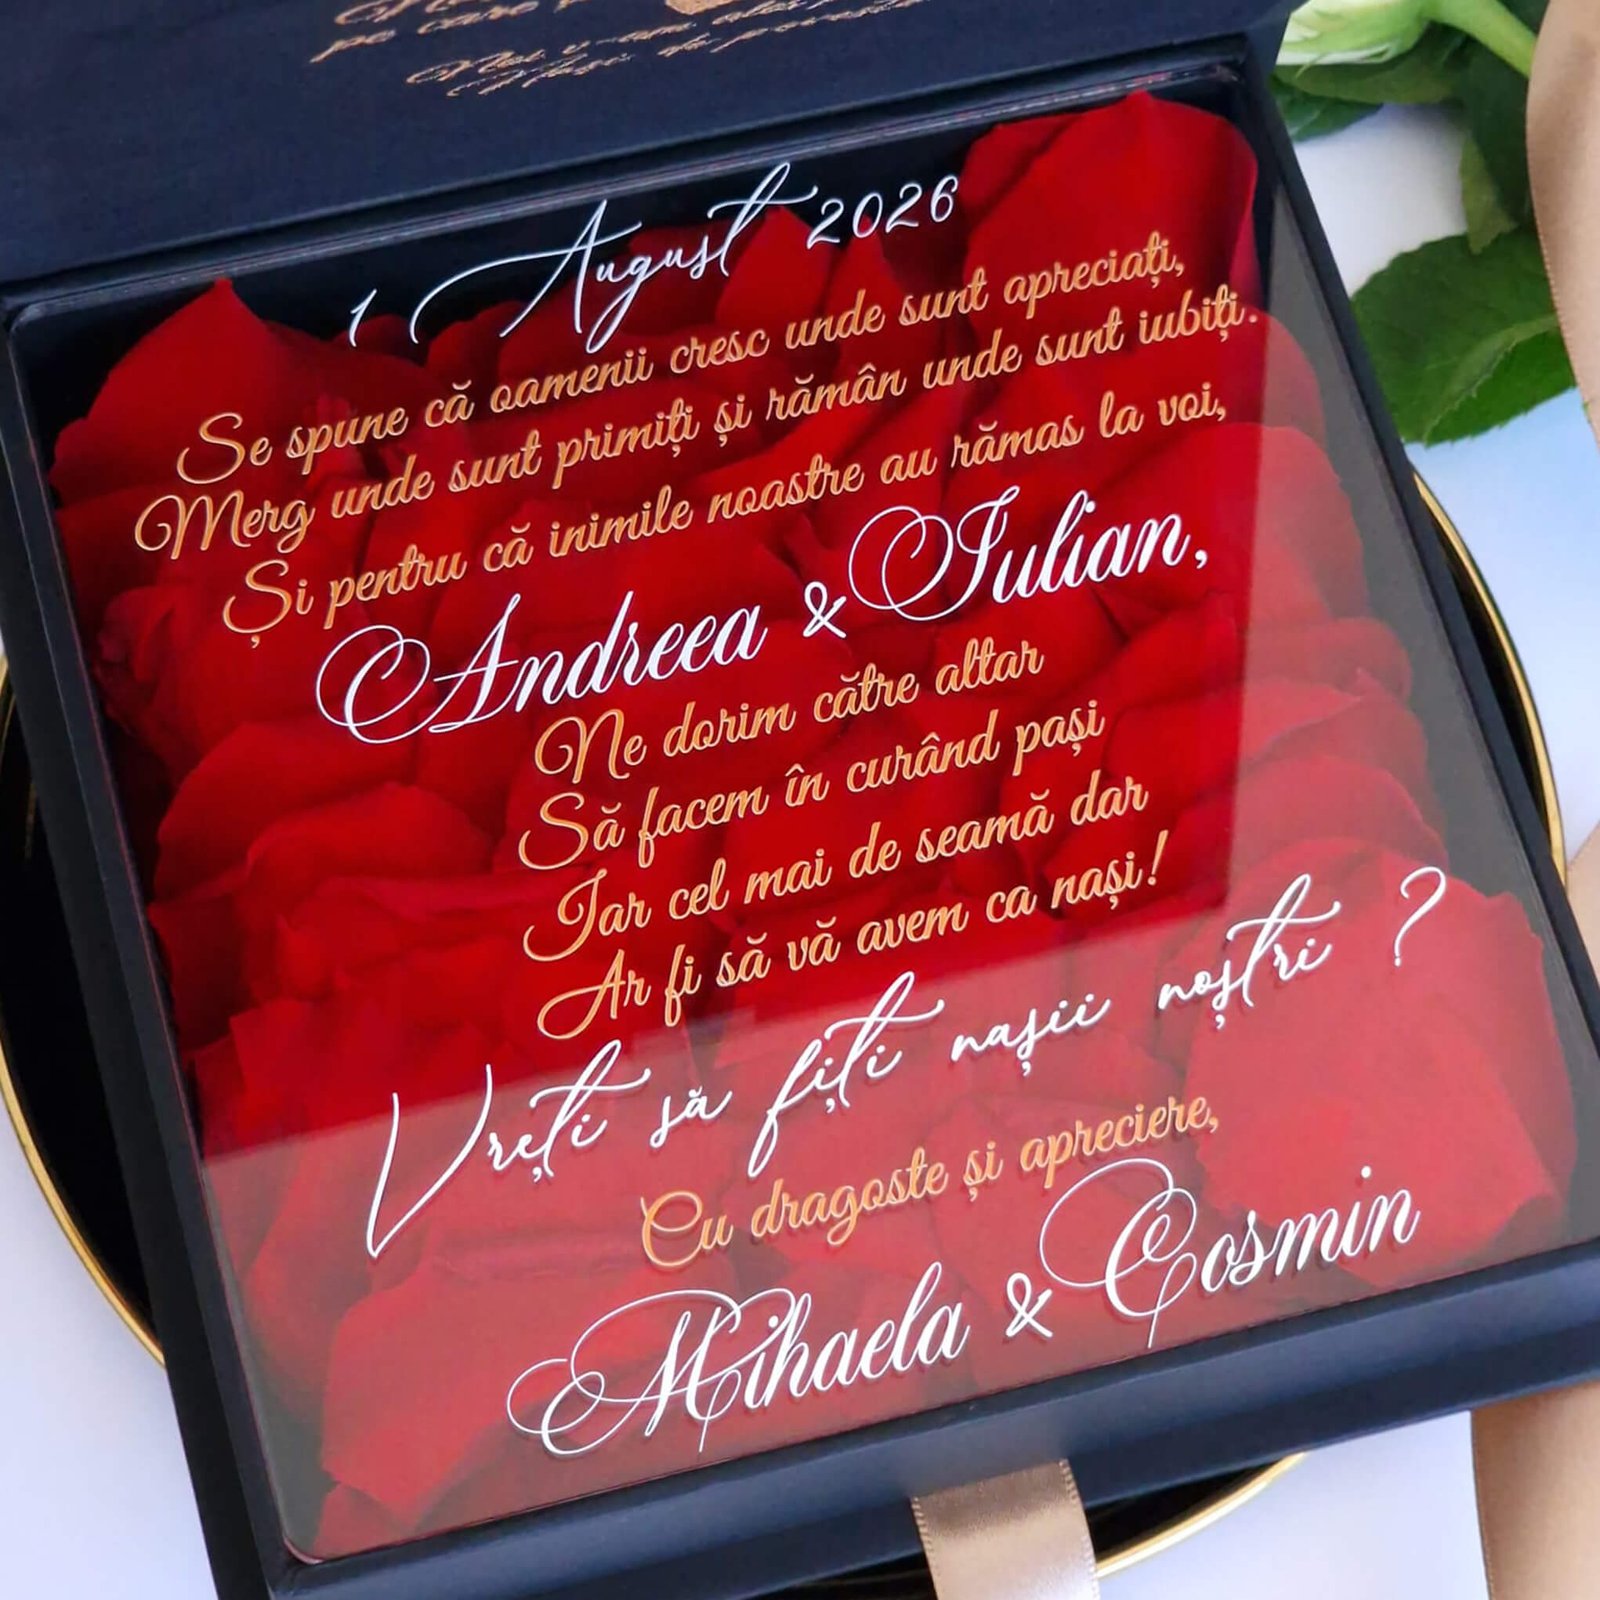 pe care
1 August 2026
Se spune că oamenii cresc unde sunt apreciați,
Merg unde sunt primiți și rămân unde sunt iubiți.
Și pentru că inimile noastre au rămas la voi,
Andreea & Iulian,
Ne dorim către altar
Să facem în curând pași
Iar cel mai de seamă dar
Ar fi să vă avem ca nași!
Vreți să fiți nașii noștri ?
Cu dragoste și apreciere,
Mihaela & Cosmin